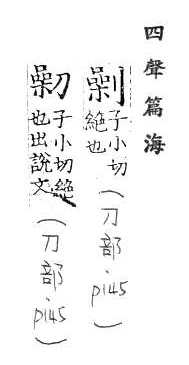 四聲篇海
劋子小切
絕也
(刀部.p145)
子小切絕
也出說文
(刀部.p145)